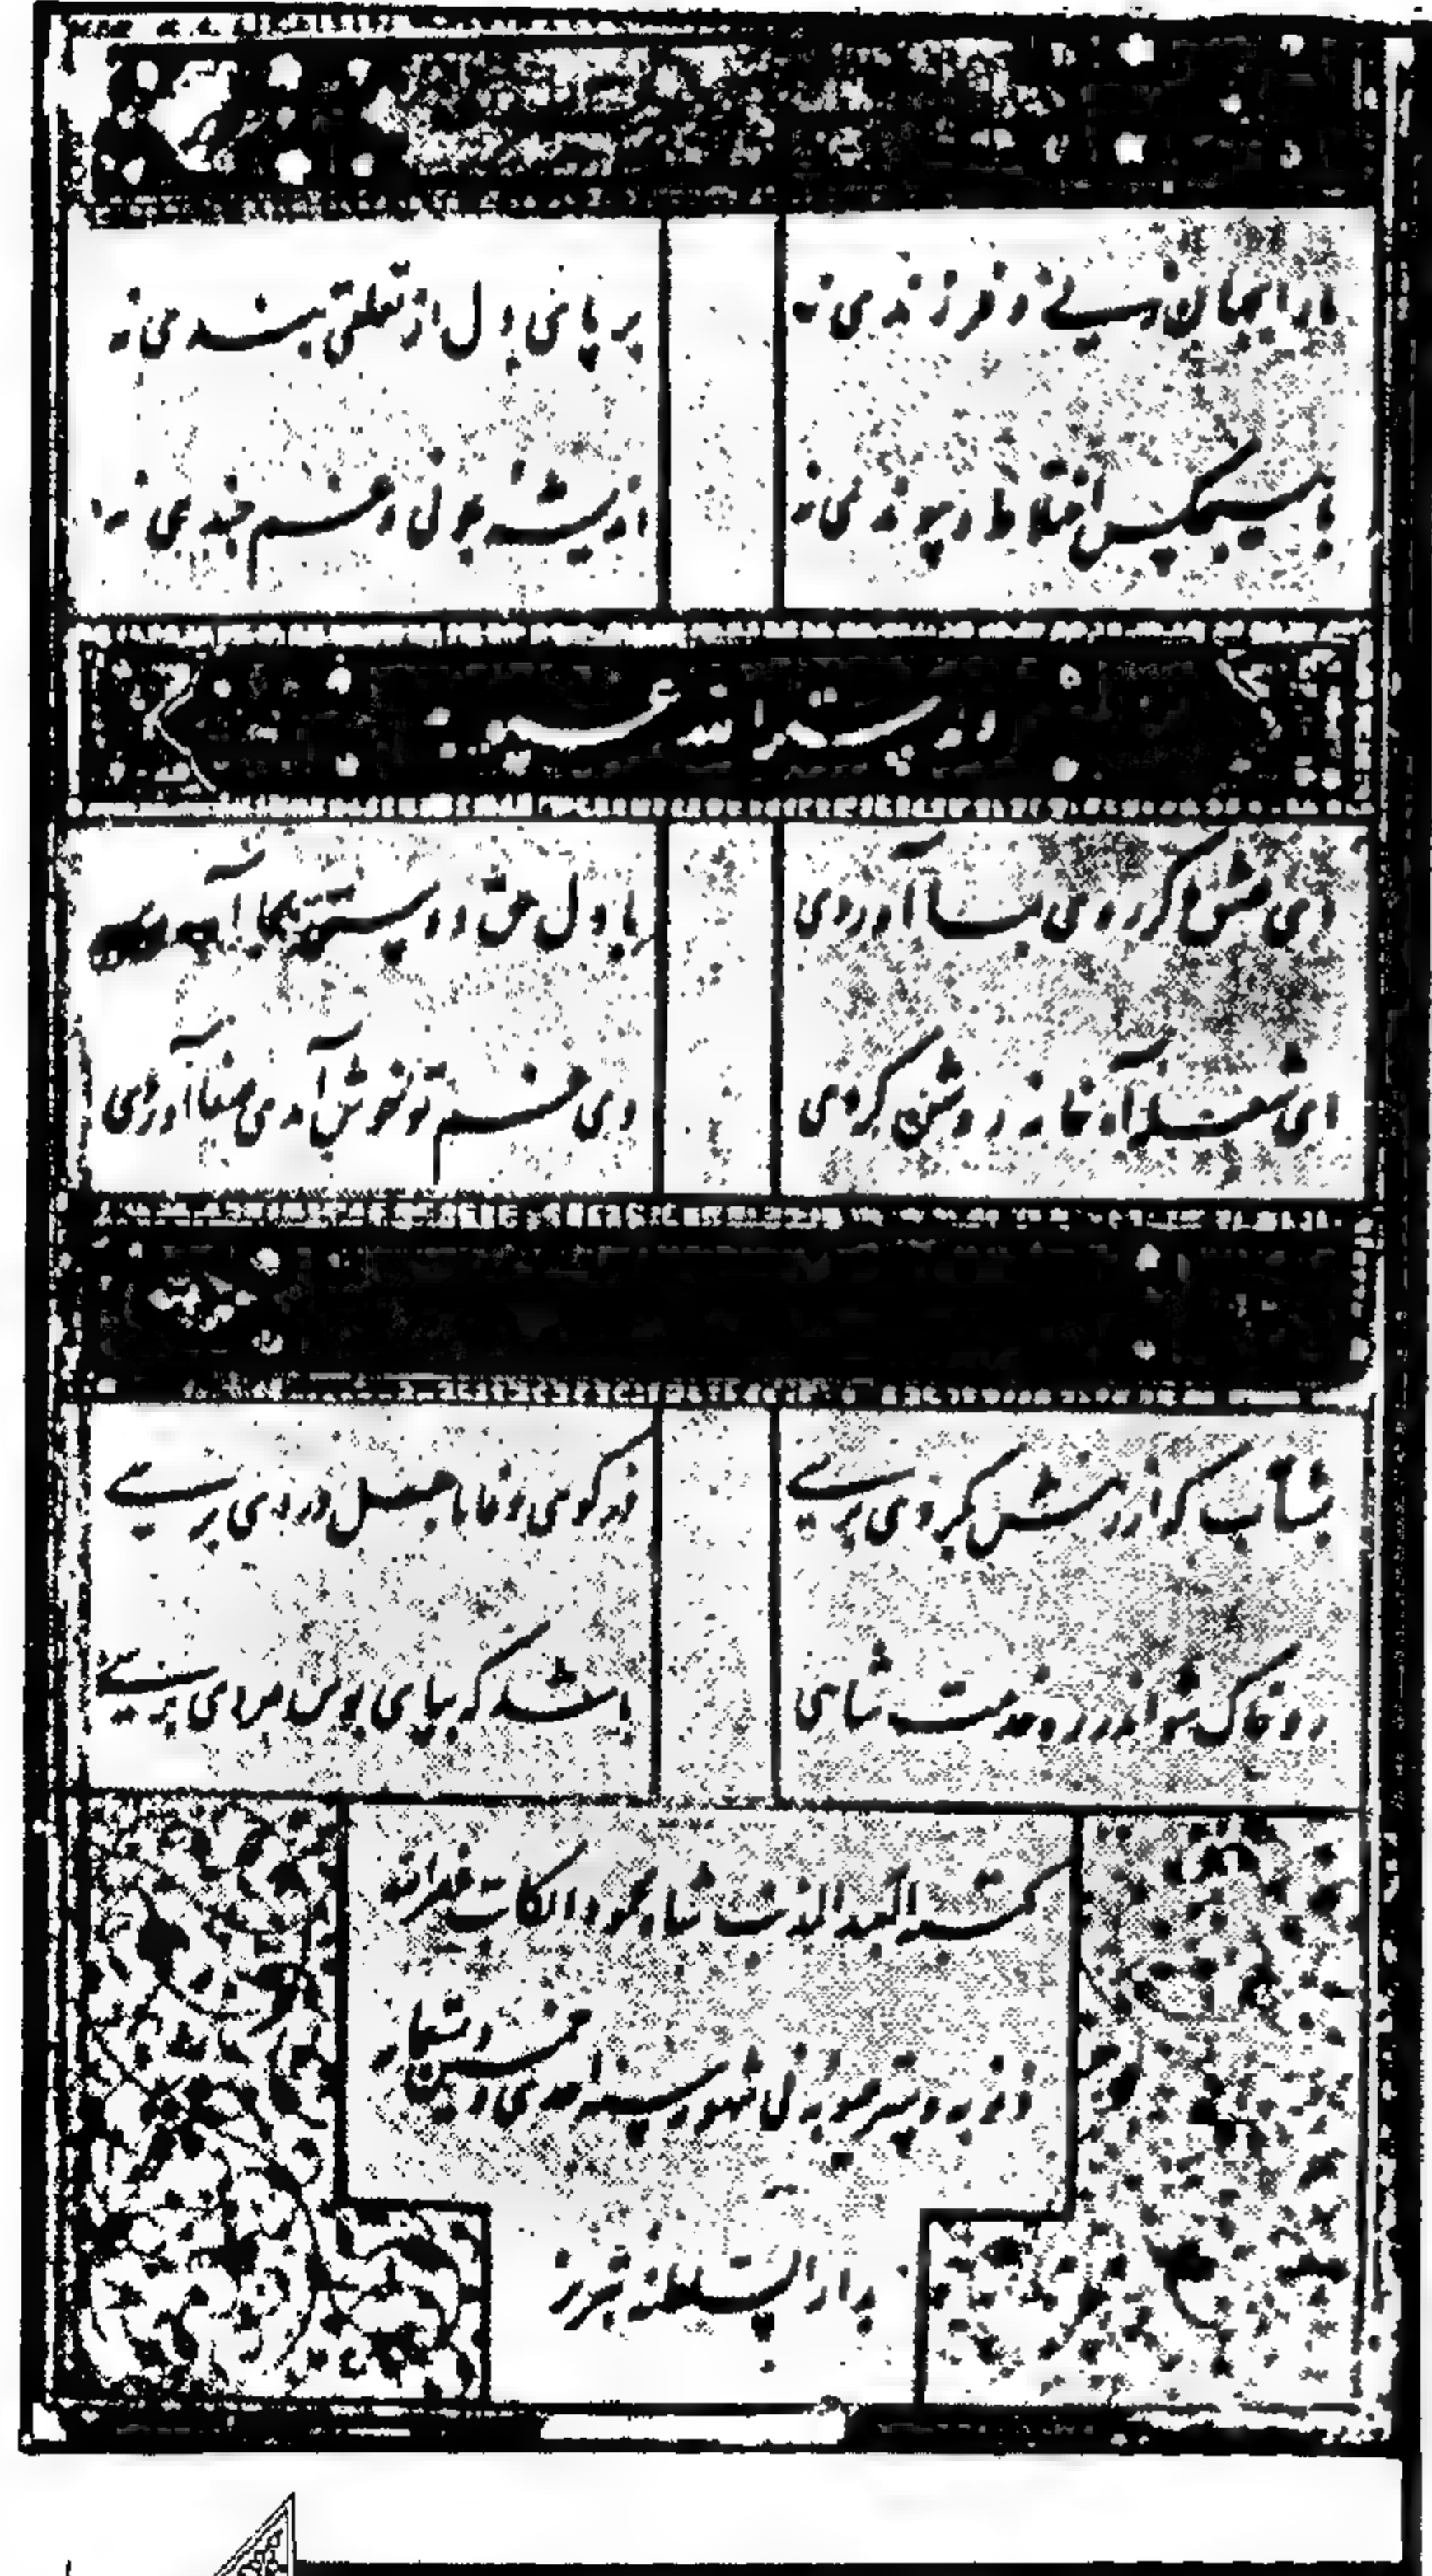 ما را بجهان زنے و فرزندی نه
بر پای دل از تعلقی بندی نه
با هیچکس اختلاط و پیوندی نه
اندیشه چونی و غم چندی نه
ای عشق که رو می بما آوردی
با دل حق دوستی بجا آوردی
ای شعله آه خانه روشن کردی
وی غم تو خوش آمدی صفا آوردی
بشتاب که از رمش بگردی برسے
در کوی وفا با هل دردی برسے
رو خاک شو اندر ره خدمت شاهی
باشد که بپای بوس مردی برسے
کتبه العبد المذنب شاه محمود الکاتب غفرالله
ذنوبه و ستر عیوبه فی شهور سنه احدی و خمسین و تسعمایه
بدار السلطنه تبریز